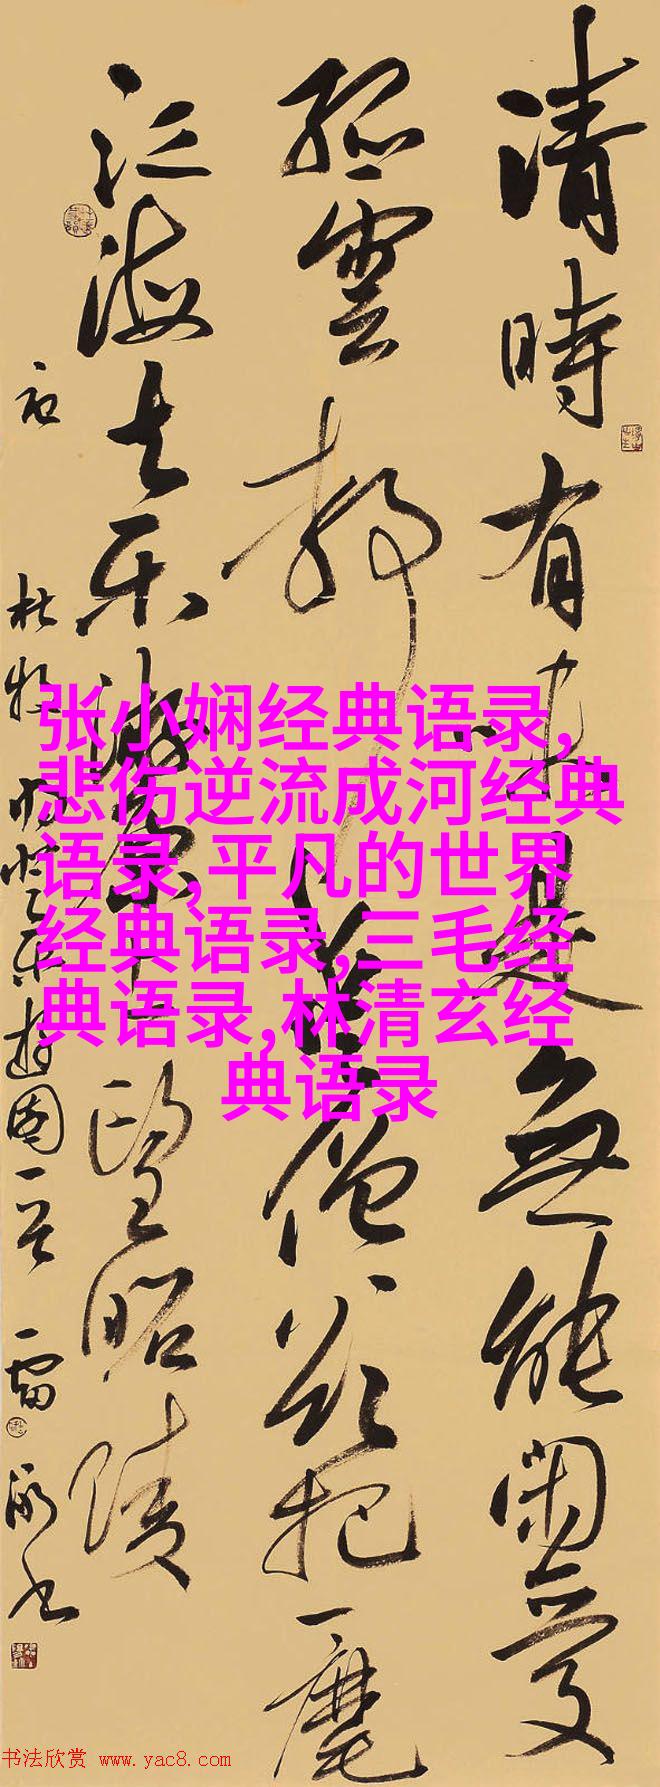 清時有味是無能閑愛
孤雲静愛僧欲把一麾
江海去乐游原上望昭陵
杜牧
张小娴经典语录,
悲伤逆流成河经典
语录,平凡的世界
经典语录,三毛经
典语录,林清玄经
典语录
书法欣赏 www.yac8.com